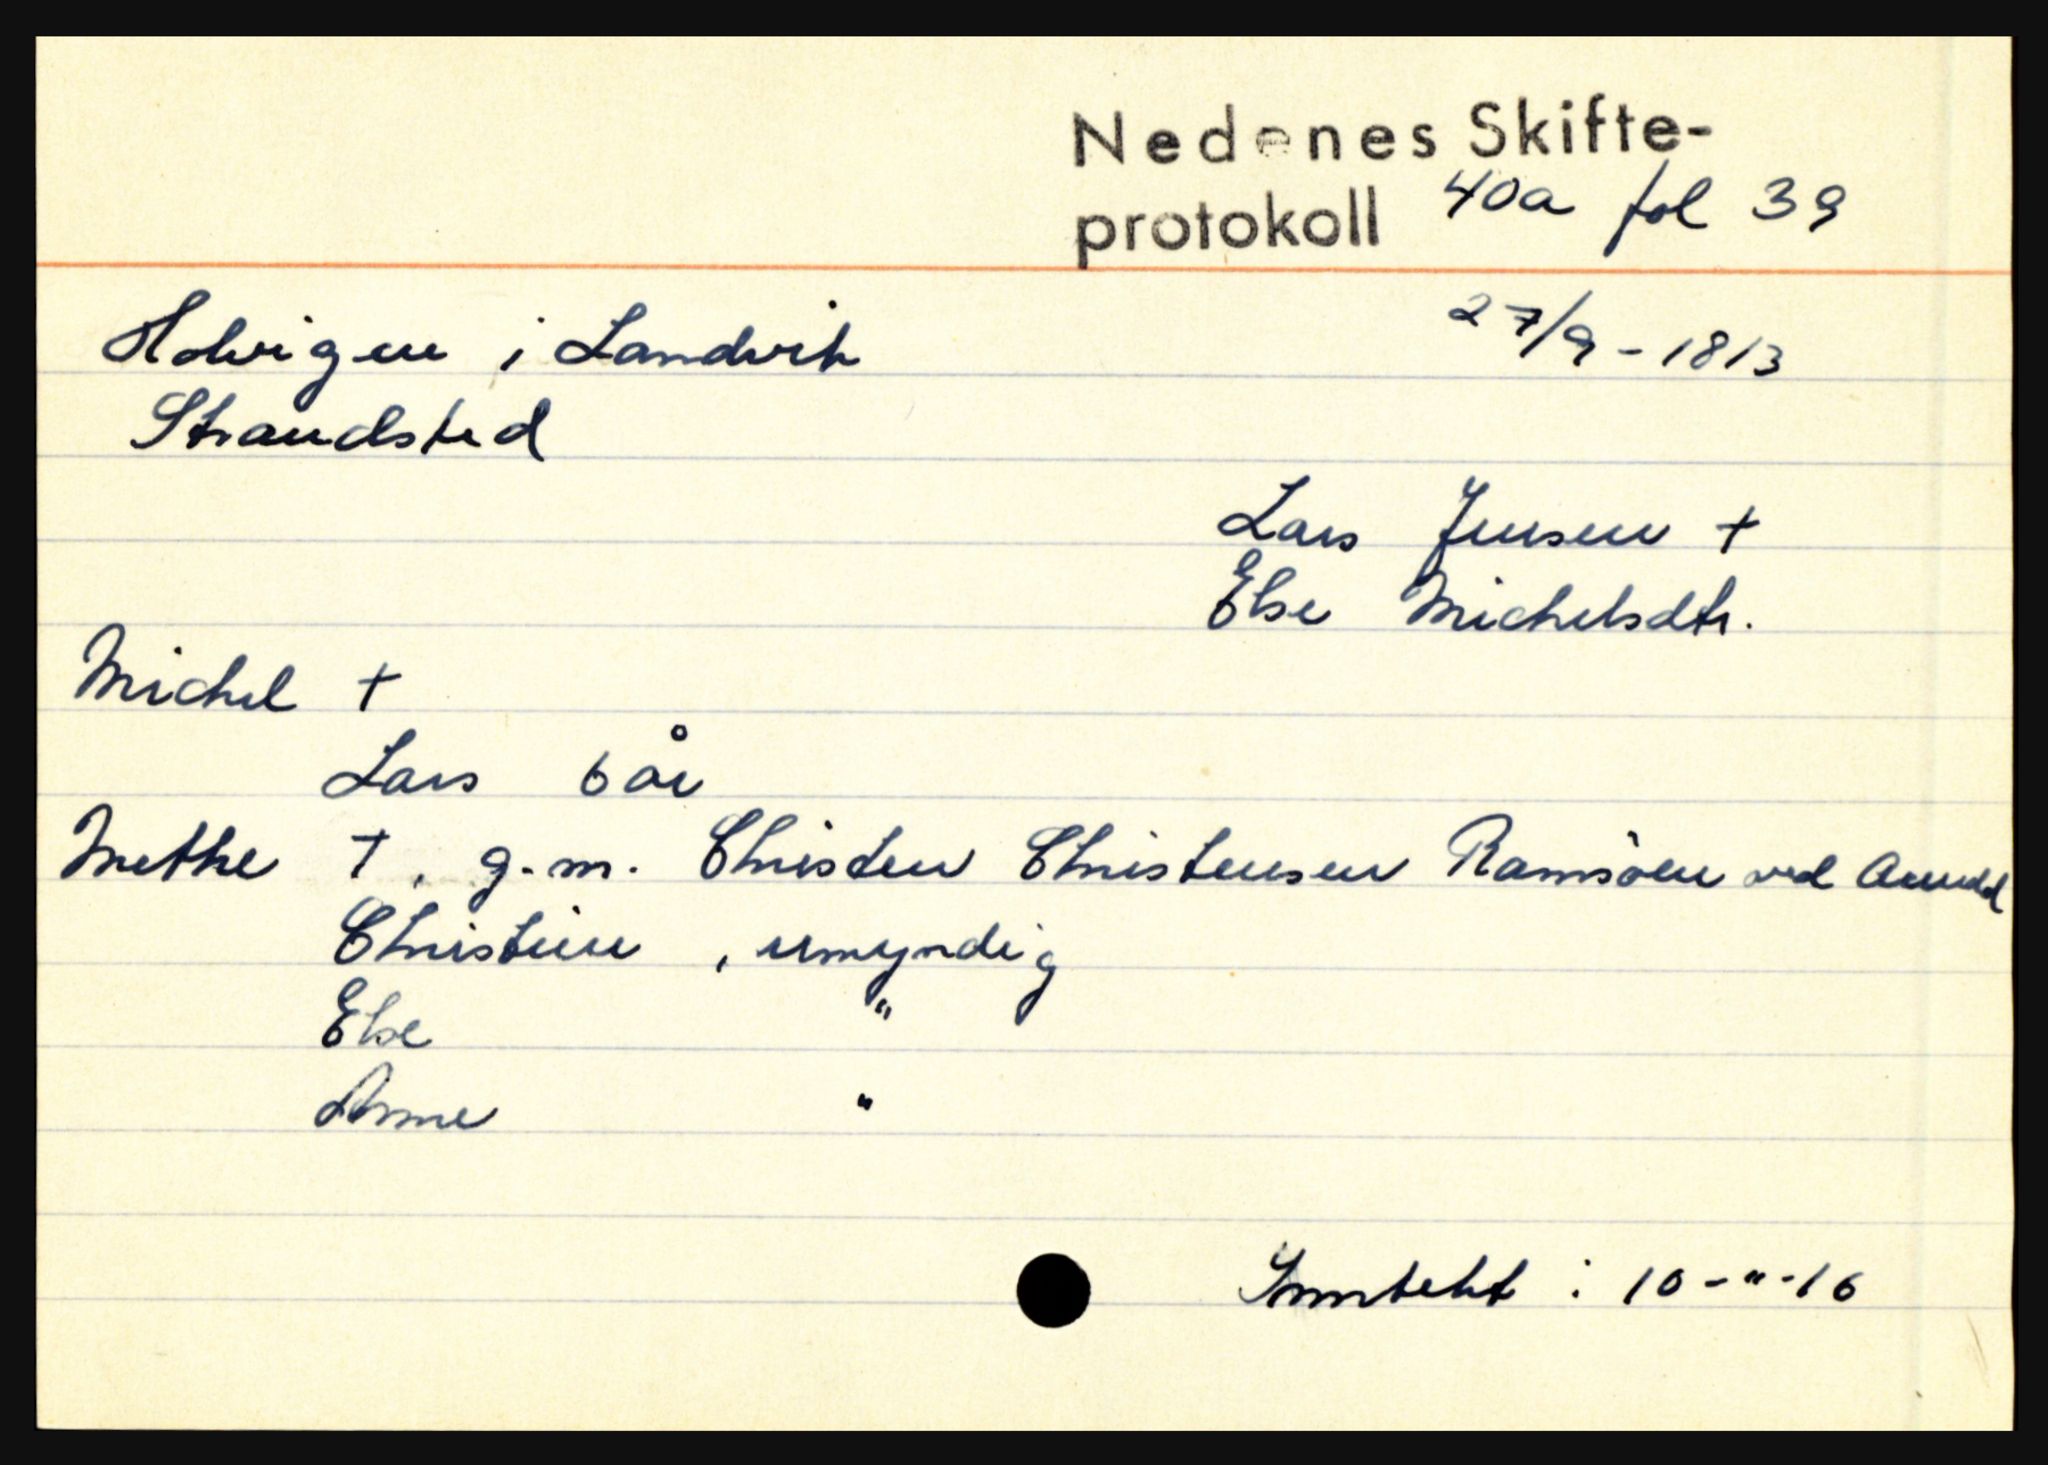 Nedenes Skifte-
protokoll 40a fol 39
27/9 - 1813
Holvigen i Landvik
Strandsted
Lars Jensen +
Else Michelsdtr.
Michel +
Lars 6 år
Methe +, g.m. Christen Christensen Ramsöen ved Arendal
Christen, umyndig
Else "
Anne "
Inntekt : 10-"-16